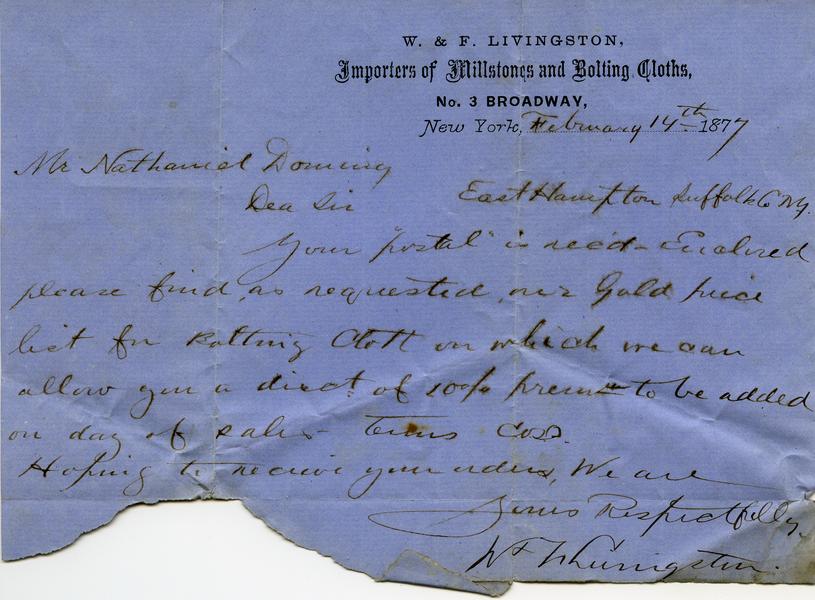 W. & F. LIVINGSTON,
Importers of Millstones and Bolting Cloths,
No. 3 BROADWAY,
New York, February 14th 1877
Mr Nathaniel Dominy
East Hampton Suffolk Co NY.
Dea Sir
Your "postal" is rec'd - Enclosed
please find, as requested, our Gold price
list for Bolting Cloth on which we can
allow you a disct. of 10% prem to be added
on day of sale - Terms COD.
Hoping to receive your orders, We are
Yours Respectfully,
W & F Livingston.